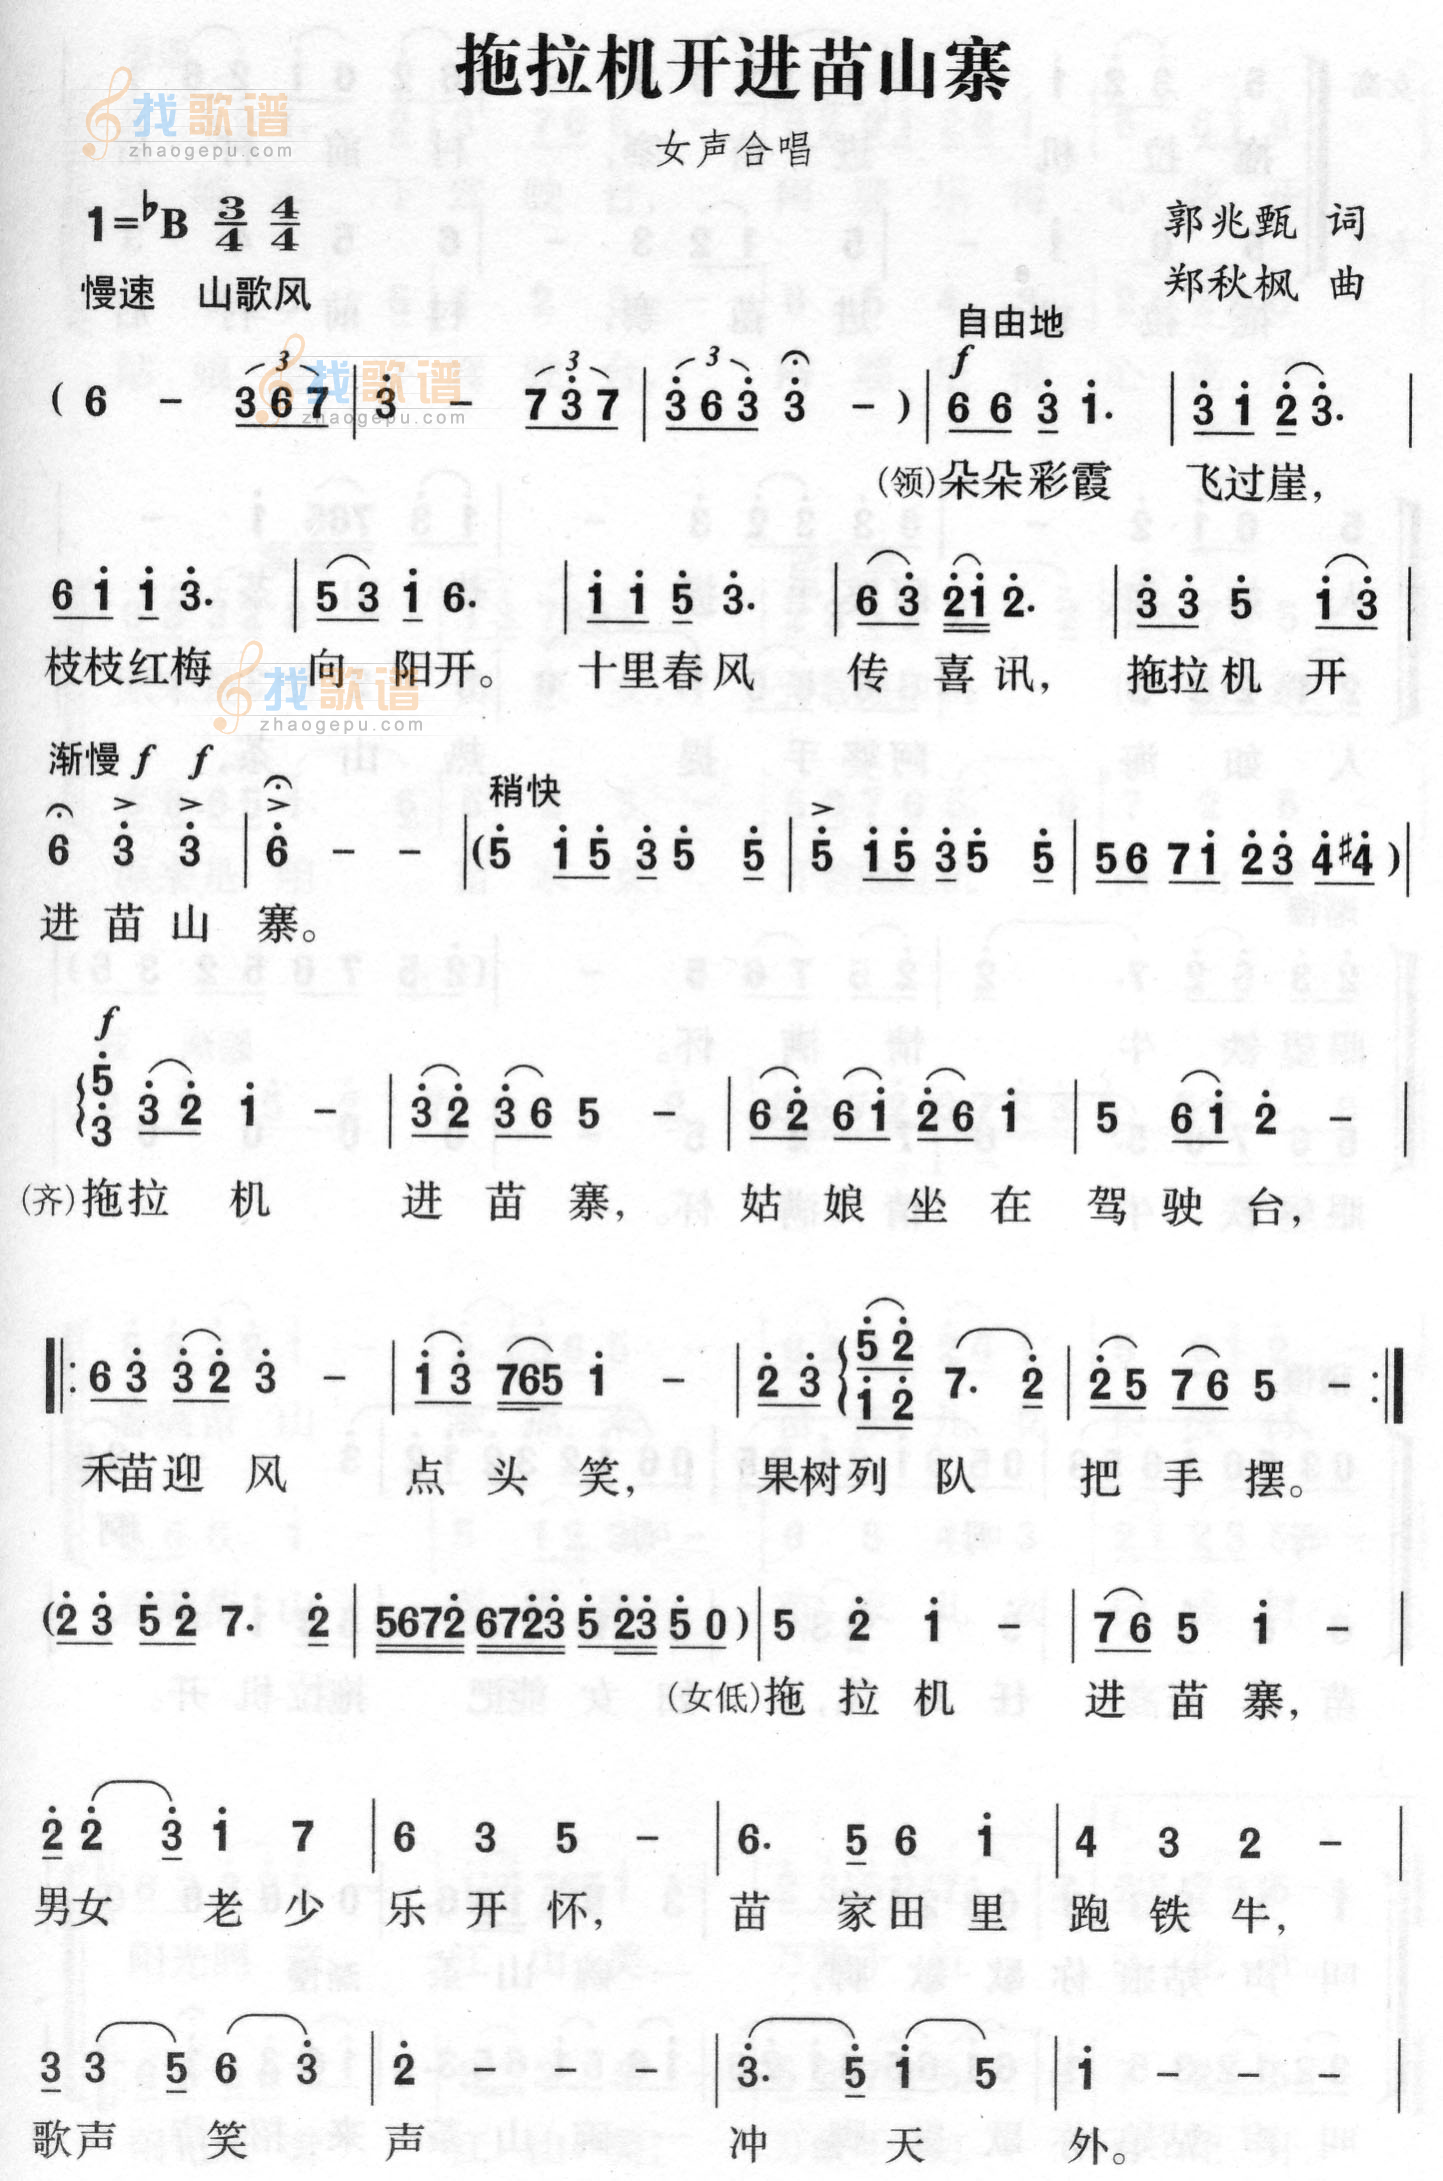 拖拉机开进苗山寨
找歌谱
zhaogepu.com
女声合唱
1=♭B 3/4 4/4
郭兆甄 词
慢速 山歌风
郑秋枫 曲
自由地
找歌谱
zhaogepu.com
3 3 3 f
( 6 - 3 6 7 | 3̇ - 7 3̇ 7 | 3̇ 6 3̇ 3̇ - ) | 6 6 3̇ 1̇. | 3̇ 1̇ 2̇ 3̇. |
(领)朵朵彩霞 飞过崖，
6 1̇ 1̇ 3̇. | 5 3 1̇ 6. | 1̇ 1̇ 5̇ 3̇. | 6 3̇ 2̇ 1̇ 2̇. | 3̇ 3̇ 5̇ 1̇ 3̇ |
枝枝红梅 向 阳开。 十里春风 传 喜 讯， 拖拉机 开
找歌谱
zhaogepu.com
渐慢 f f
稍快
6 3̇ 3̇ | 6̇ - - | (5̇ 1̇ 5̇ 3̇ 5̇ 5̇ | 5̇ 1̇ 5̇ 3̇ 5̇ 5̇ | 5 6 7 1̇ 2̇ 3̇ 4̇ #4̇ ) |
进 苗 山 寨。
f
5̇
3̇ 3̇ 2̇ 1̇ - | 3̇ 2̇ 3̇ 6 5 - | 6 2̇ 6 1̇ 2̇ 6 1̇ | 5 6 1̇ 2̇ - |
(齐)拖拉 机 进 苗 寨， 姑 娘 坐 在 驾 驶 台，
5̇ 2̇
‖: 6 3̇ 3̇ 2̇ 3̇ - | 1̇ 3̇ 7 6 5 1̇ - | 2̇ 3̇ 1̇ 2̇ 7. 2̇ | 2̇ 5 7 6 5 - :‖
禾苗迎 风 点 头 笑， 果树列 队 把 手 摆。
(2̇ 3̇ 5̇ 2̇ 7. 2̇ | 5 6 7 2̇ 6 7 2̇ 3̇ 5̇ 2̇ 3̇ 5̇ 0 ) | 5 2̇ 1̇ - | 7 6 5 1̇ - |
(女低)拖 拉 机 进 苗 寨，
2̇ 2̇ 3̇ 1̇ 7 | 6 3 5 - | 6. 5 6 1̇ | 4 3 2 - |
男女 老 少 乐 开 怀， 苗 家田 里 跑 铁 牛，
3 3 5 6 3̇ | 2̇ - - - | 3̇. 5 1̇ 5 | 1̇ - - - |
歌声 笑 声 冲 天 外。